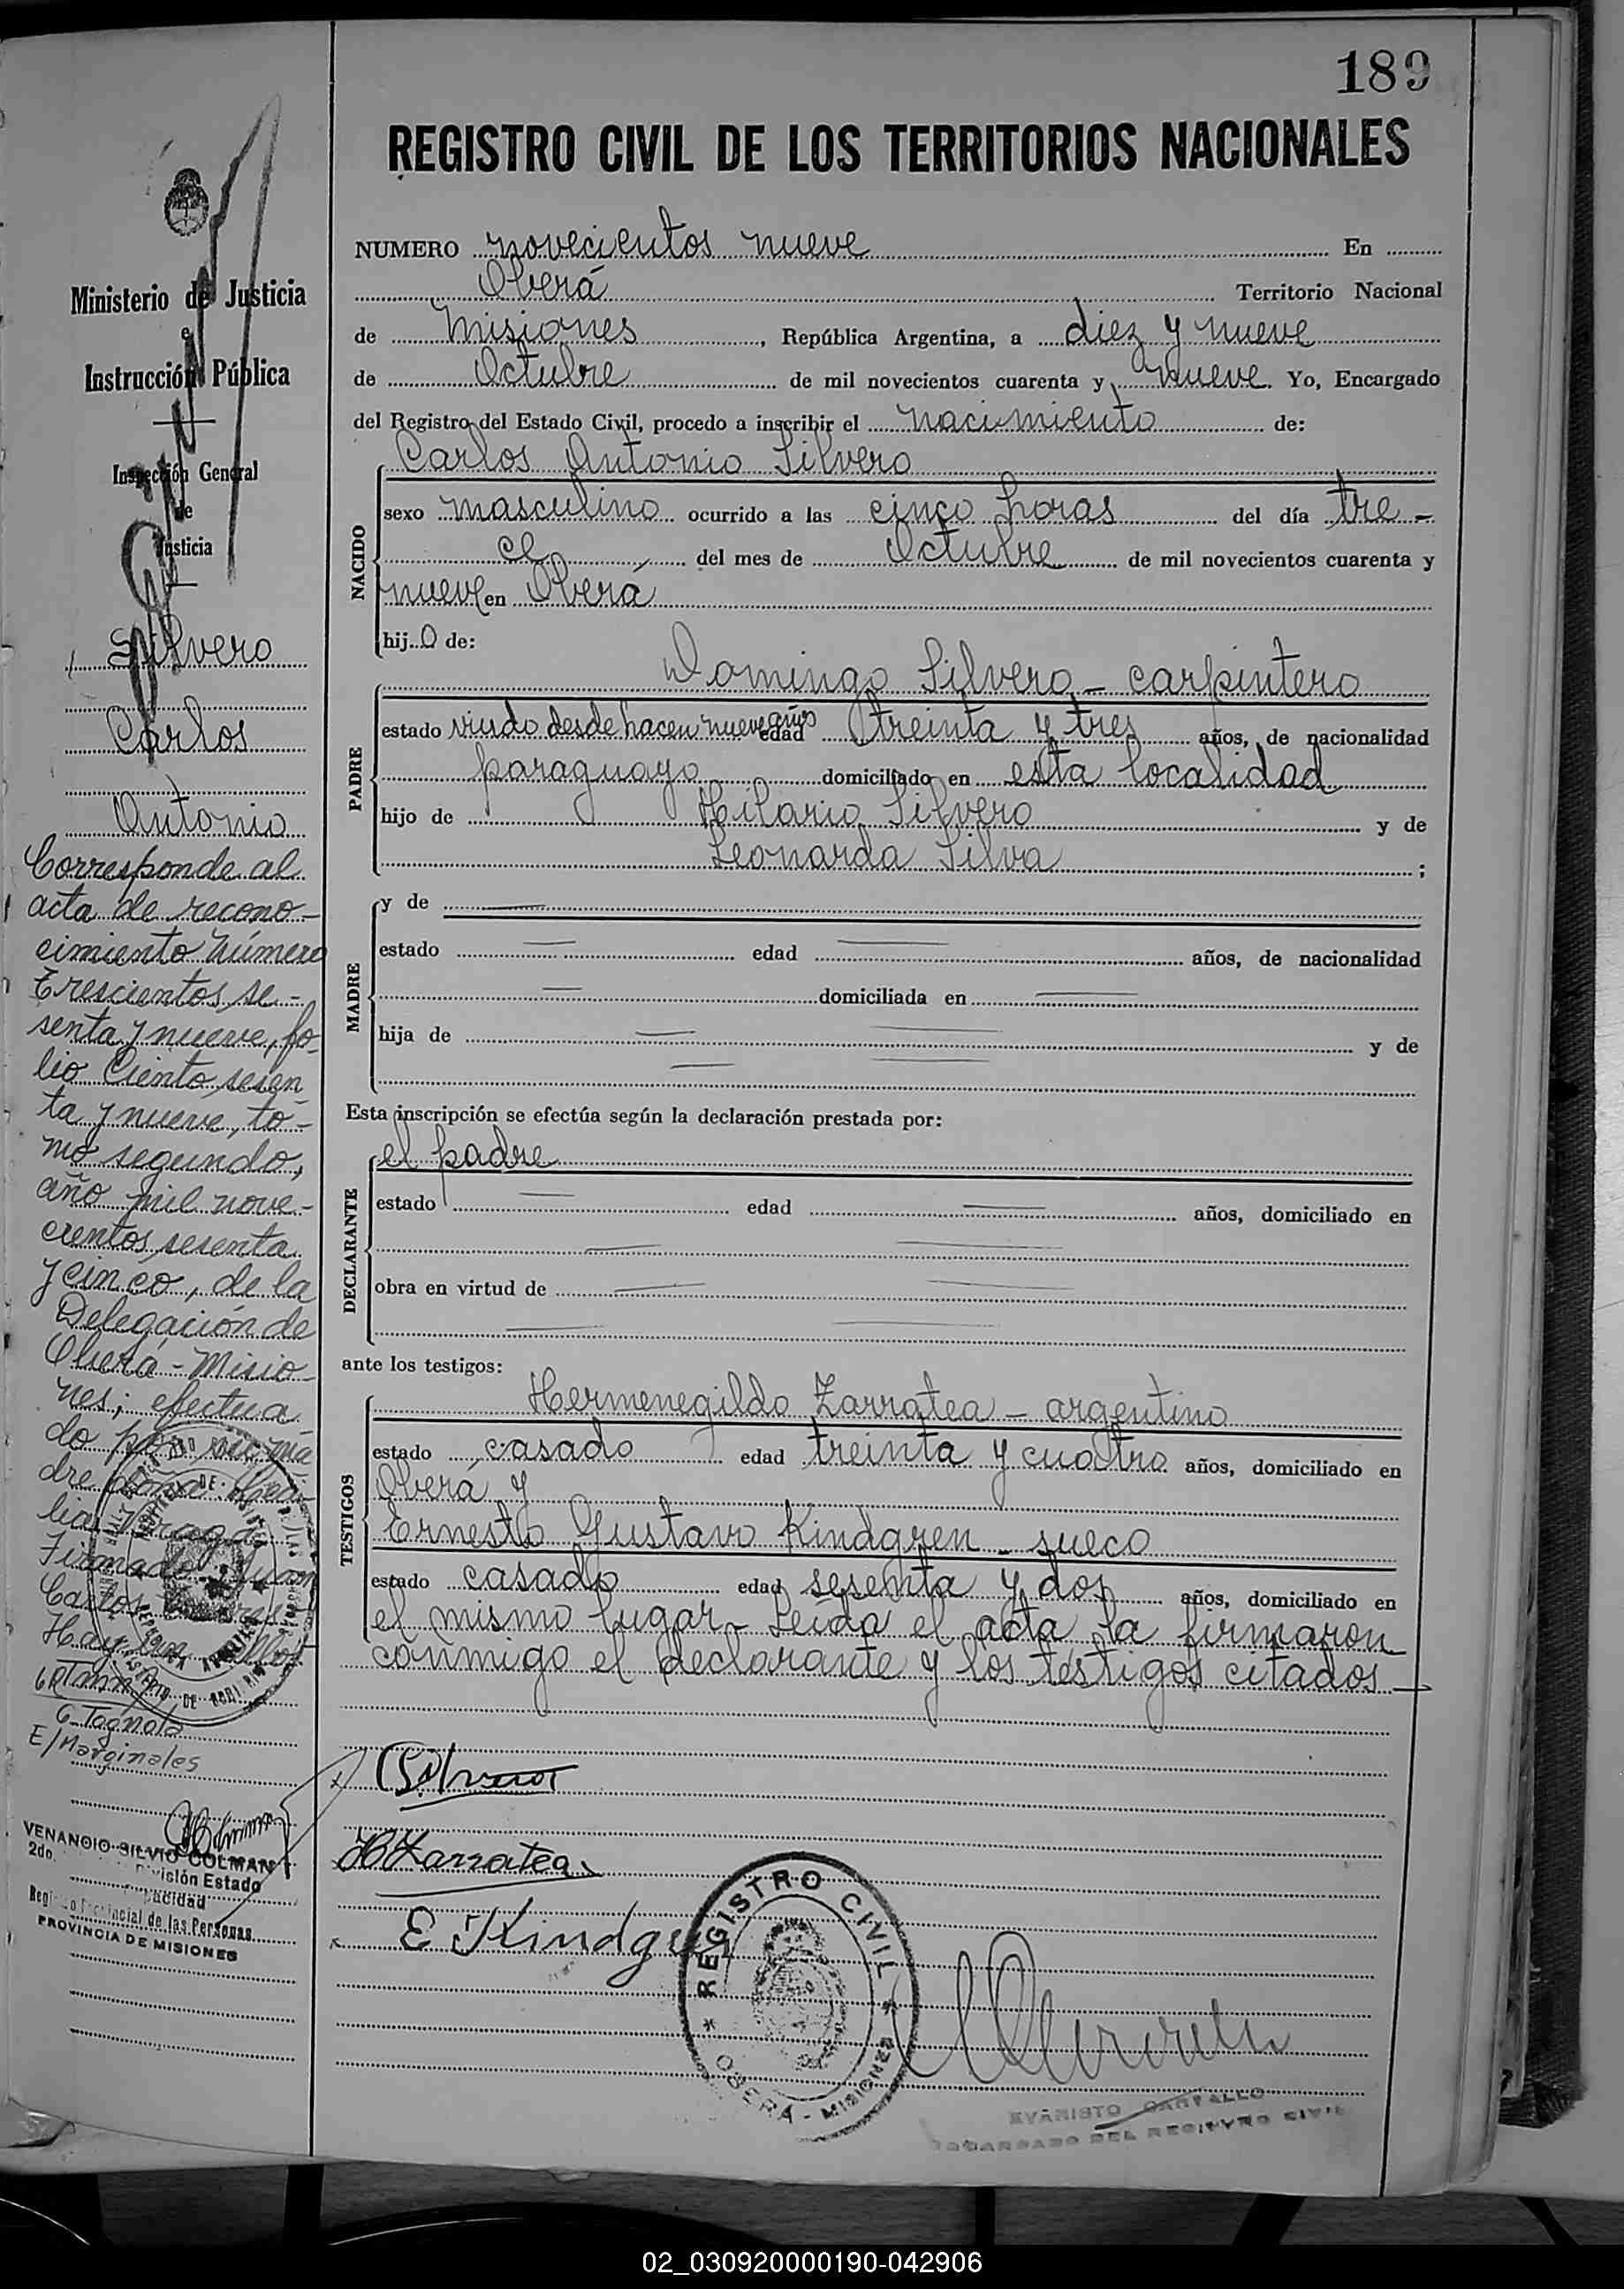 189
REGISTRO CIVIL DE LOS TERRITORIOS NACIONALES
NUMERO novecientos nueve En
Oberá Territorio Nacional
de Misiones, República Argentina, a diez y nueve
de Octubre de mil novecientos cuarenta y nueve. Yo, Encargado
del Registro del Estado Civil, procedo a inscribir el nacimiento de:
Carlos Antonio Silvero
NACIDO
sexo masculino ocurrido a las cinco horas del día tre-
ce del mes de Octubre de mil novecientos cuarenta y
nueve en Oberá
hijo de:
Domingo Silvero - carpintero
PADRE
estado viudo desde hacen nueve años edad treinta y tres años, de nacionalidad
paraguayo domiciliado en esta localidad
hijo de Hilario Silvero y de
Leonarda Silva;
MADRE
y de
estado edad años, de nacionalidad
domiciliada en
hija de y de
Esta inscripción se efectúa según la declaración prestada por:
el padre
DECLARANTE
estado edad años, domiciliado en
obra en virtud de
ante los testigos:
Hermenegildo Zarratea - argentino
TESTIGOS
estado casado edad treinta y cuatro años, domiciliado en
Oberá y
Ernesto Gustavo Kindgren - sueco
estado casado edad sesenta y dos años, domiciliado en
el mismo lugar - Leída el acta la firmaron
conmigo el declarante y los testigos citados
H Zarratea
E Kindgren
REGISTRO CIVIL
OBERÁ - MISIONES
EVARISTO CARVALLO
ENCARGADO DEL REGISTRO CIVIL
Ministerio de Justicia
e
Instrucción Pública
Inspección General
de
Justicia
Silvero
Carlos
Antonio
Corresponde al
acta de recono-
cimiento número
trescientos se-
senta y nueve, fo-
lio ciento sesen
ta y nueve, to-
mo segundo,
año mil nove-
cientos sesenta
y cinco, de la
Delegación de
Oberá - Misio-
nes; efectua
do por su ma
dre doña
Firmado Juan
Carlos
Hay un sello
C. Tagnola
E/Marginales
VENANCIO SILVIO COLMAN
2do. División Estado
Capacidad
Registro Provincial de las Personas
PROVINCIA DE MISIONES
02_030920000190-042906